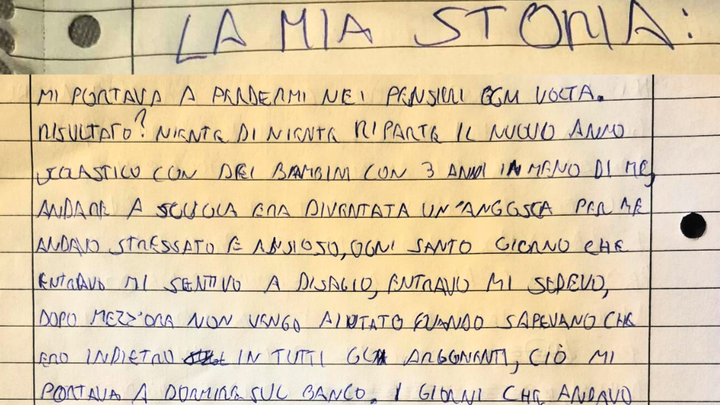 LA MIA STORIA:
MI PORTAVA A PERDERMI NEI PENSIERI OGNI VOLTA.
RISULTATO? NIENTE DI NIENTE RIPARTE IL NUOVO ANNO
SCOLASTICO CON DEI BAMBINI CON 3 ANNI IN MENO DI ME,
ANDARE A SCUOLA ERA DIVENTATA UN'ANGOSCIA PER ME
ANDAVO STRESSATO E ANSIOSO, OGNI SANTO GIORNO CHE
ENTRAVO MI SENTIVO A DISAGIO, ENTRAVO MI SEDEVO,
DOPO MEZZ'ORA NON VENGO AIUTATO QUANDO SAPEVANO CHE
ERO INDIETRO IN TUTTI GLI ARGOMENTI, CIÒ MI
PORTAVA A DORMIRE SUL BANCO. I GIORNI CHE ANDAVO